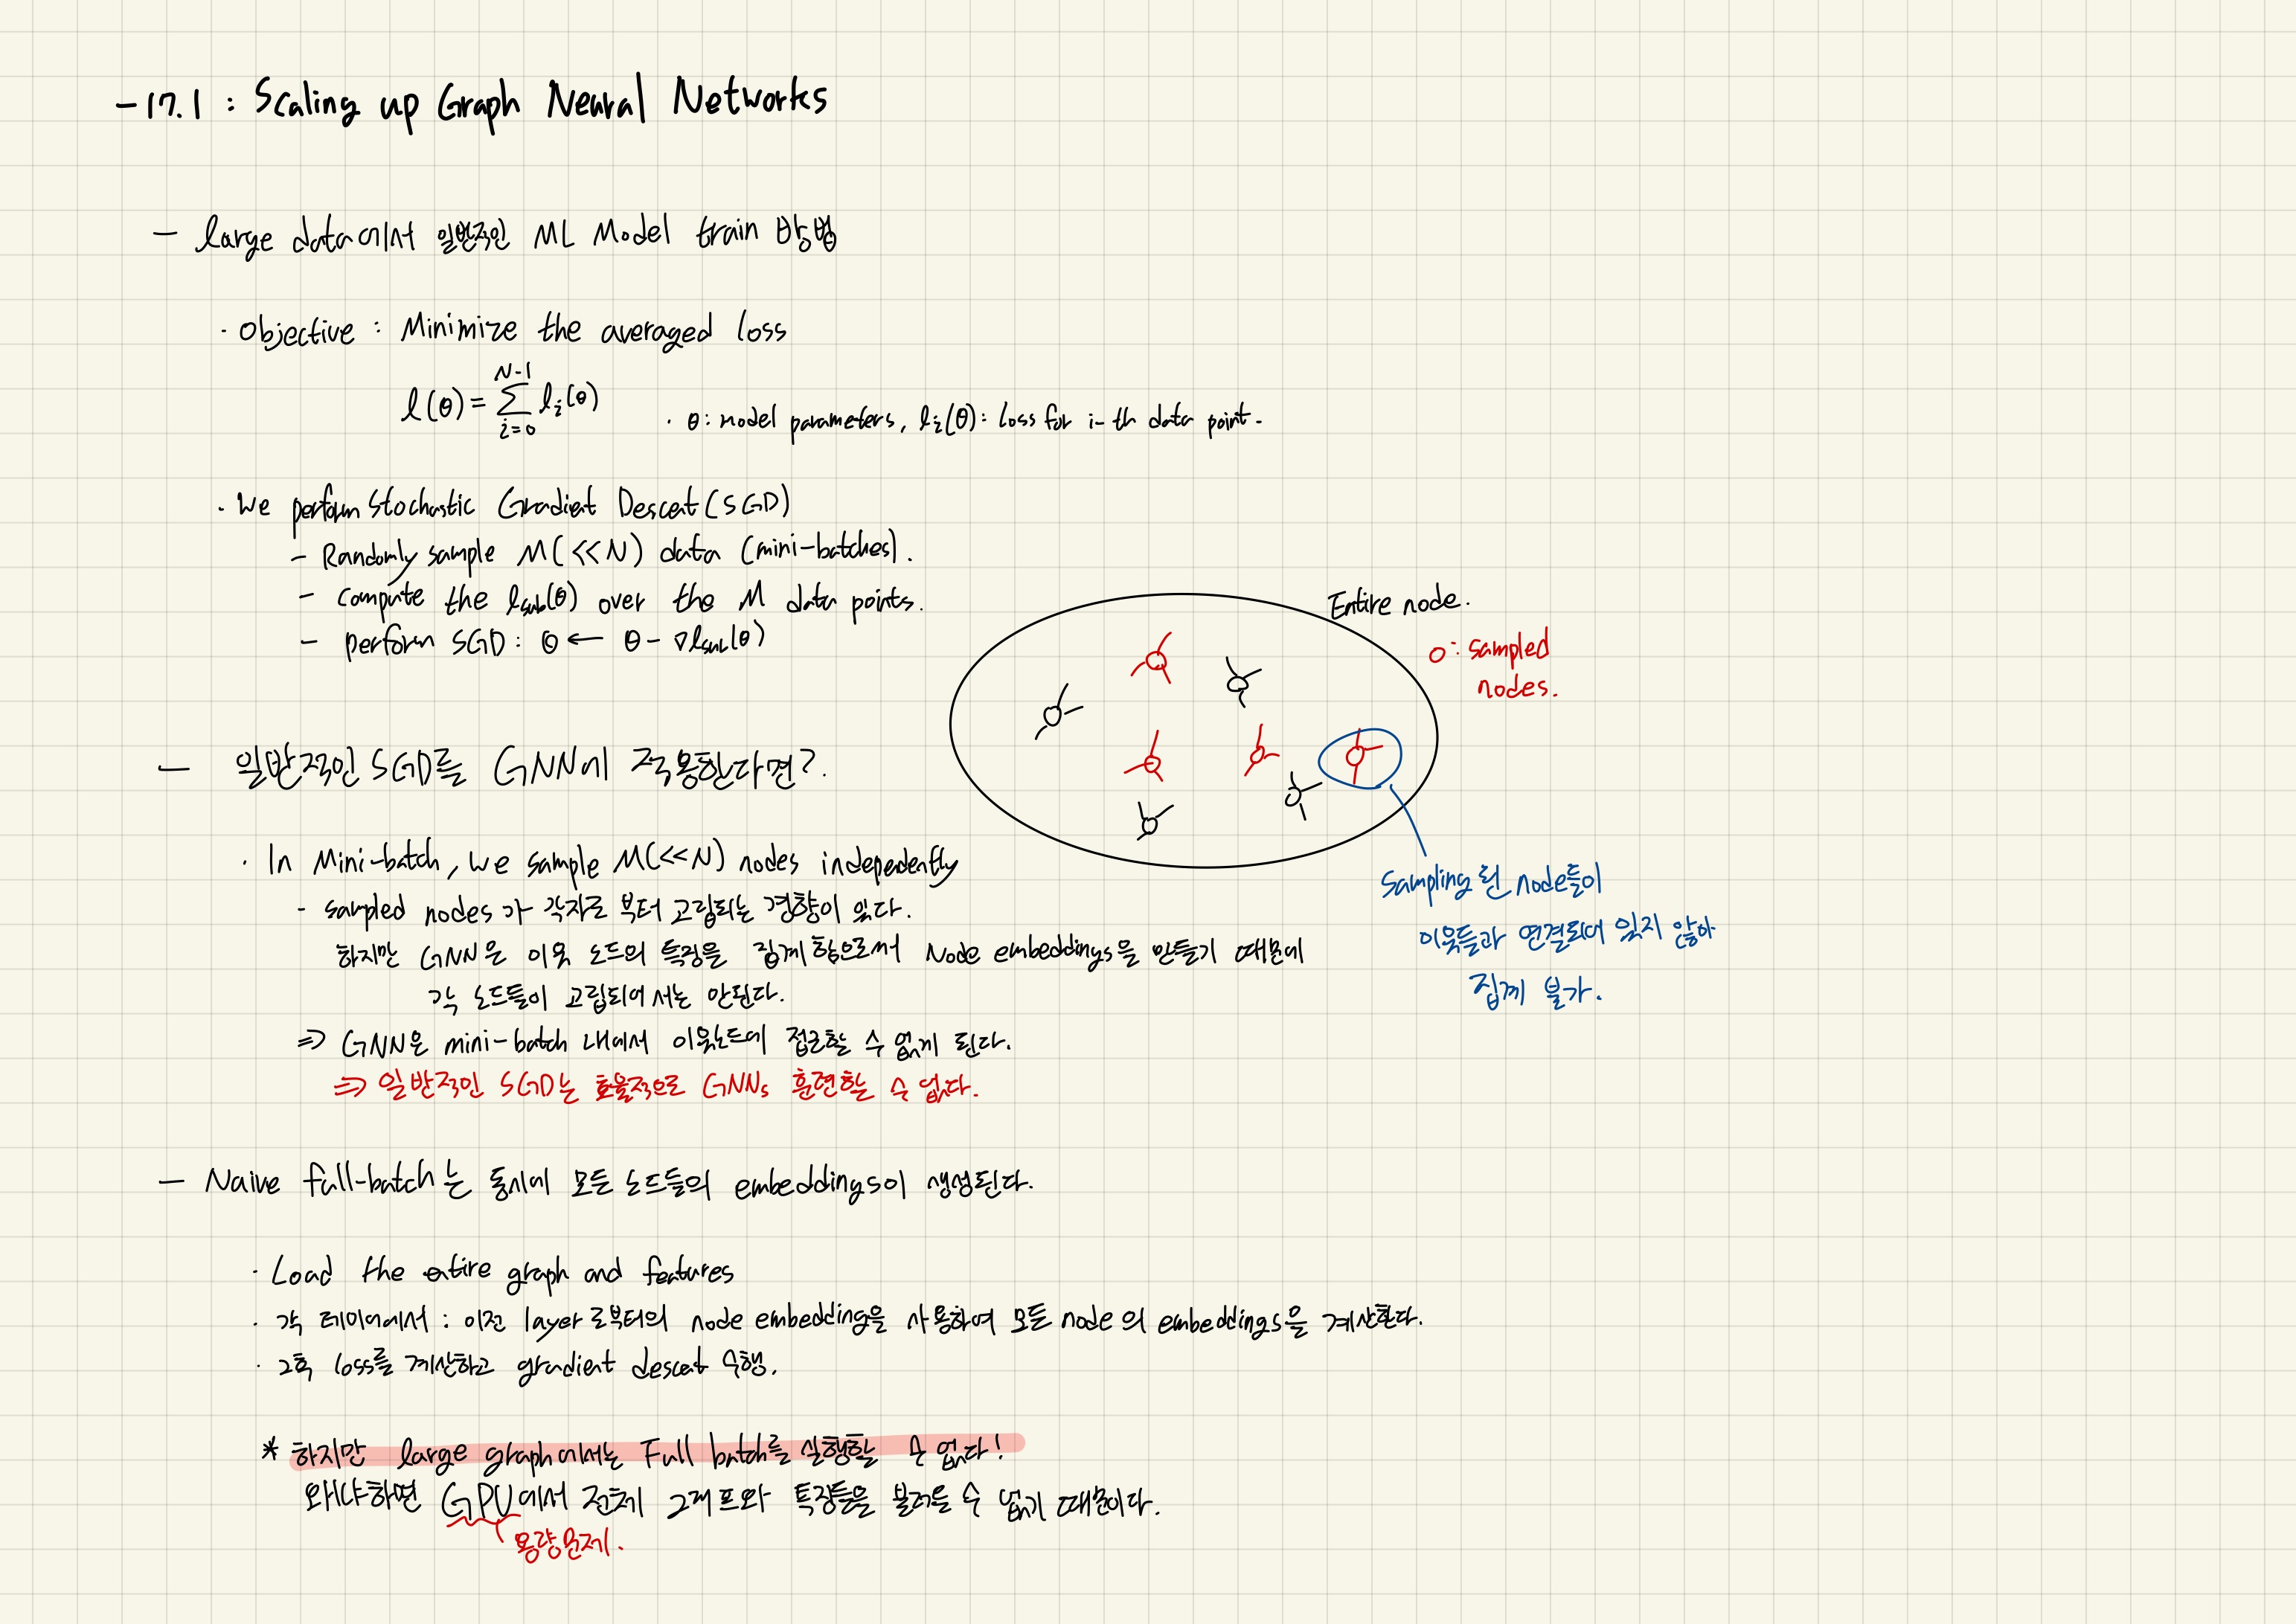 -17.1 : Scaling up Graph Neural Networks
- large data에서 일반적인 ML Model train 방법
· Objective : Minimize the averaged loss
l(θ) = Σ_{i=0}^{N-1} l_i(θ)
· θ: model parameters, l_i(θ): loss for i-th data point.
· We perform Stochastic Gradient Descet (SGD)
- Randomly sample M(<<N) data (mini-batches).
- compute the l_sub(θ) over the M data points.
- perform SGD : θ ← θ - ∇l_sub(θ)
Entire node.
o: sampled
nodes.
- 일반적인 SGD를 GNN에 적용한다면?
· In Mini-batch, we sample M(<<N) nodes indepedently
- sampled nodes가 각자로 부터 고립되는 경향이 있다.
하지만 GNN은 이웃 노드의 특징을 집계 함으로써 Node embeddings을 만들기 때문에
각 노드들이 고립되어서는 안된다.
⇒ GNN은 mini-batch 내에서 이웃노드에 접근할 수 없게 된다.
⇒ 일반적인 SGD는 효율적으로 GNNs 훈련할 수 없다.
Sampling 된 node들이
이웃들과 연결되어 있지 않아
집계 불가.
- Naive full-batch는 동시에 모든 노드들의 embeddings이 생성된다.
· Load the entire graph and features
· 각 레이어에서 : 이전 layer로부터의 node embedding을 사용하여 모든 node의 embeddings을 계산한다.
· 그후 loss를 계산하고 gradient descet 수행.
* 하지만 large graph에서는 Full batch를 실행할 수 없다!
왜냐하면 GPU에서 전체 그래프와 특징들을 불러올 수 없기 때문이다.
용량문제.